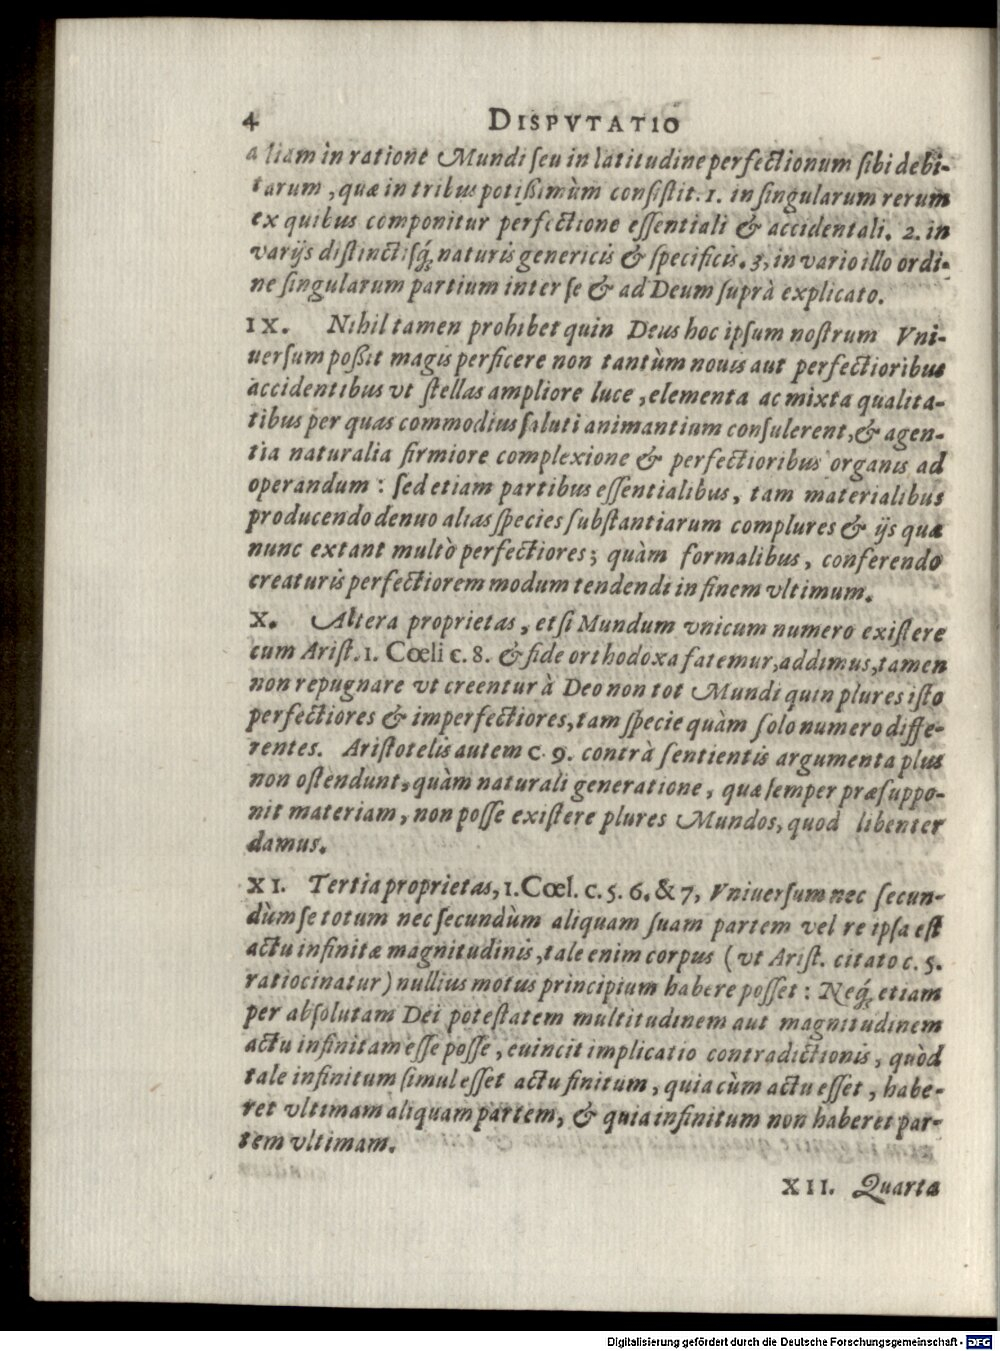 4 DISPVTATIO
aliam in ratione Mundi ſeu in latitudine perfectionum ſibi debi-
tarum, quæ in tribus potißimùm conſiſtit. 1. in ſingularum rerum
ex quibus componitur perfectione eſſentiali & accidentali. 2. in
varijs diſtinctiſq́; naturis genericis & ſpecificis. 3, in vario illo ordi-
ne ſingularum partium inter ſe & ad Deum ſuprà explicato.
IX. Nihil tamen prohibet quin Deus hoc ipſum noſtrum Vni-
uerſum poßit magis perficere non tantùm nouis aut perfectioribus
accidentibus vt ſtellas ampliore luce, elementa ac mixta qualita-
tibus per quas commodius ſaluti animantium conſulerent, & agen-
tia naturalia firmiore complexione & perfectioribus organis ad
operandum: ſed etiam partibus eſſentialibus, tam materialibus
producendo denuo alias ſpecies ſubſtantiarum complures & ijs quæ
nunc extant multò perfectiores; quàm formalibus, conferendo
creaturis perfectiorem modum tendendi in finem vltimum.
X. Altera proprietas, etſi Mundum vnicum numero exiſtere
cum Ariſt. 1. Cœli c. 8. & fide orthodoxa fatemur, addimus, tamen
non repugnare vt creentur à Deo non tot Mundi quin plures iſto
perfectiores & imperfectiores, tam ſpecie quàm ſolo numero diffe-
rentes. Ariſtotelis autem c. 9. contrà ſentientis argumenta plus
non oſtendunt, quàm naturali generatione, quæ ſemper præſuppo-
nit materiam, non poſſe exiſtere plures Mundos, quod libenter
damus.
XI. Tertia proprietas, 1. Cœl. c. 5. 6. & 7, Vniuerſum nec ſecun-
dùm ſe totum nec ſecundùm aliquam ſuam partem vel re ipſa eſt
actu infinitæ magnitudinis, tale enim corpus (vt Ariſt. citato c. 5.
ratiocinatur) nullius motus principium habere poſſet: Neq́; etiam
per abſolutam Dei poteſtatem multitudinem aut magnitudinem
actu infinitam eſſe poſſe, euincit implicatio contradictionis, quòd
tale infinitum ſimul eſſet actu finitum, quia cùm actu eſſet, habe-
ret vltimam aliquam partem, & quia infinitum non haberet par-
tem vltimam.
XII. Quarta
Digitalisierung gefördert durch die Deutsche Forschungsgemeinschaft - DFG